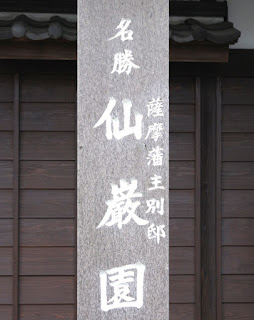 名勝
薩摩藩主別邸
仙巌園